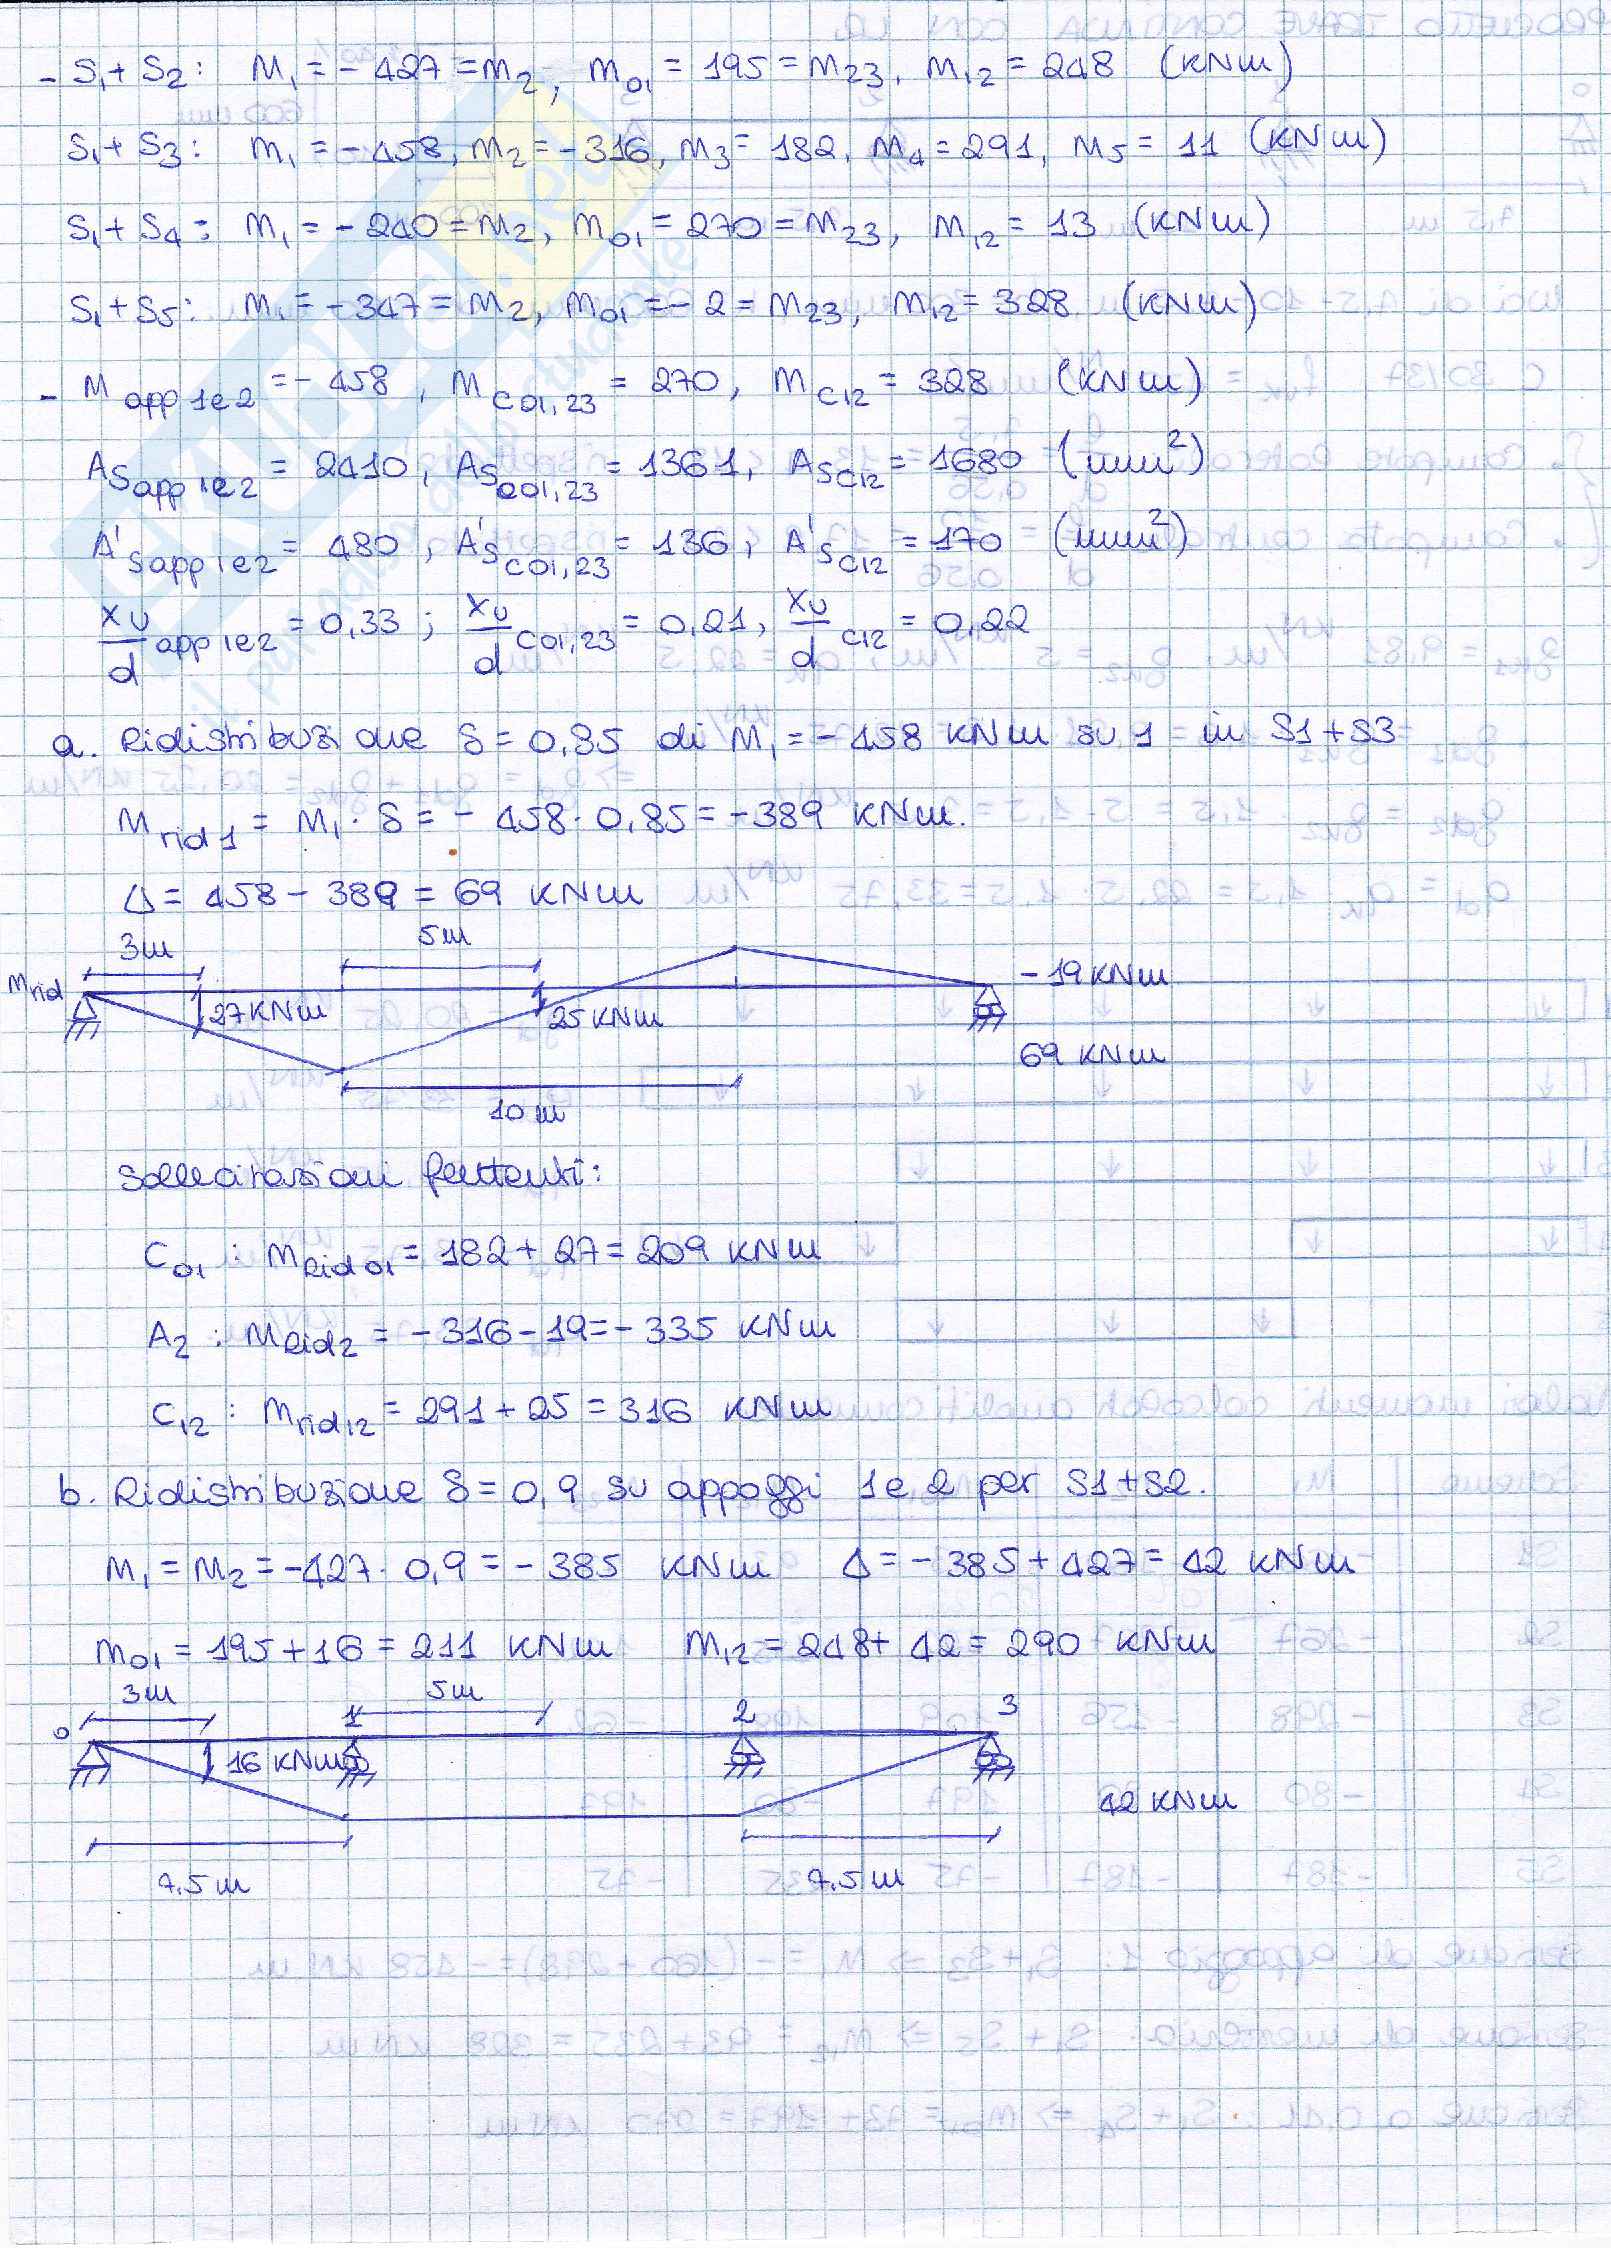 - S1 + S2 : M1 = - 427 = M2 , M01 = 195 = M23 , M12 = 248 (KNm)
S1 + S3 : M1 = - 458 , M2 = -316 , M3 = 182 , M4 = 291 , M5 = 11 (KNm)
S1 + S4 : M1 = - 240 = M2 , M01 = 270 = M23 , M12 = 13 (KNm)
S1 + S5 : M1 = - 347 = M2 , M01 = - 2 = M23 , M12 = 328 (KNm)
- Mapp 1e2 = - 458 , MC01,23 = 270 , MC12 = 328 (KNm)
ASapp 1e2 = 2410 , ASC01,23 = 1361 , ASC12 = 1680 (mm²)
A'Sapp 1e2 = 480 , A'SC01,23 = 136 , A'SC12 = 170 (mm²)
xu/d app 1e2 = 0,33 ; xu/d C01,23 = 0,21 , xu/d C12 = 0,22
a. Ridistribuzione δ = 0,85 di M1 = - 458 KNm su 1 in S1 + S3
Mrid1 = M1 · δ = - 458 · 0,85 = - 389 KNm.
Δ = 458 - 389 = 69 KNm
3m 5m
Mrid 27 KNm 25 KNm - 19 KNm
69 KNm
10 m
Sollecitazioni flettenti :
C01 : MRid01 = 182 + 27 = 209 KNm
A2 : MRid2 = - 316 - 19 = - 335 KNm
C12 : Mrid12 = 291 + 25 = 316 KNm
b. Ridistribuzione δ = 0,9 su appoggi 1 e 2 per S1 + S2.
M1 = M2 = - 427 · 0,9 = - 385 KNm Δ = - 385 + 427 = 42 KNm
M01 = 195 + 16 = 211 KNm M12 = 248 + 42 = 290 KNm
3m 5m
0 1 2 3
16 KNm
42 KNm
7,5 m 7,5 m